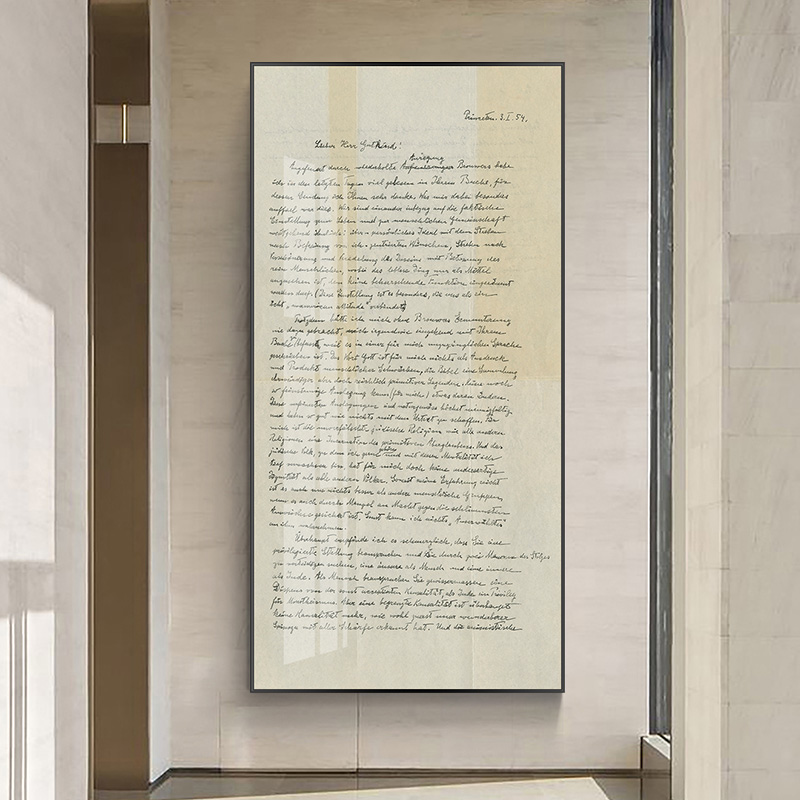 Princeton. 3. I. 54.
Lieber Herr Gutkind!
Anregung
Angefeuert durch wiederholte Brouwers habe
ich in den letzten Tagen viel gelesen in Ihrem Buche, für
dessen Sendung ich Ihnen sehr danke. Was mir dabei besonders
auffiel war dies. Wir sind einander inbezug auf die faktische
Einstellung zum Leben und zur menschlichen Gemeinschaft
weitgehend ähnlich: über-persönliches Ideal mit dem Streben
nach Befreiung von ich-zentrierten Wünschen, Streben nach
Verschönerung und Veredelung des Daseins mit Betonung des
rein Menschlichen, wobei das leblose Ding nur als Mittel
anzusehen ist, dem keine beherrschende Funktion eingeräumt
werden darf. (Diese Einstellung ist es besonders, die uns als ein
echt „unamerican attitude" verbindet)
Trotzdem hätte ich mich ohne Brouwers Ermunterung
nie dazu gebracht, mich irgendwie eingehend mit Ihrem
Buche befasst, weil es in einer für mich unzugänglichen Sprache
geschrieben ist. Das Wort Gott ist für mich nichts als Ausdruck
und Produkt menschlicher Schwächen, die Bibel eine Sammlung
ehrwürdiger aber doch reichlich primitiver Legenden. Keine noch
so feinsinnige Auslegung kann (für mich) etwas daran ändern.
Diese verfeinerten Auslegungen sind naturgemäss höchst mannigfaltig
und haben so gut wie nichts mit dem Urtext zu schaffen. Für
mich ist die unverfälschte jüdische Religion wie alle anderen
Religionen eine Incarnation des primitiven Aberglaubens. Und das
jüdische Volk, zu dem ich gern gehöre und mit dessen Mentalität ich
tief verwachsen bin, hat für mich doch keine andersartige
Dignität als alle anderen Völker. Soweit meine Erfahrung reicht
ist es auch um nichts besser als andere menschliche Gruppen,
wenn es auch durch Mangel an Macht gegen die schlimmsten
Auswüchse gesichert ist. Sonst kann ich nichts „Auserwähltes"
an ihm wahrnehmen.
Überhaupt empfinde ich es schmerzlich, dass Sie eine
privilegierte Stellung beanspruchen und sie durch zwei Mauern des Stolzes
zu verteidigen suchen, eine äussere als Mensch und eine innere
als Jude. Als Mensch beanspruchen Sie gewissermassen einen
Dispens von der sonst accceptierten Kausalität, als Jude ein Privileg
für Monotheismus. Aber eine begrenzte Kausalität ist überhaupt
keine Kausalität mehr, wie wohl zuerst unser wunderbarer
Spinoza mit aller Schärfe erkannt hat. Und die animistische